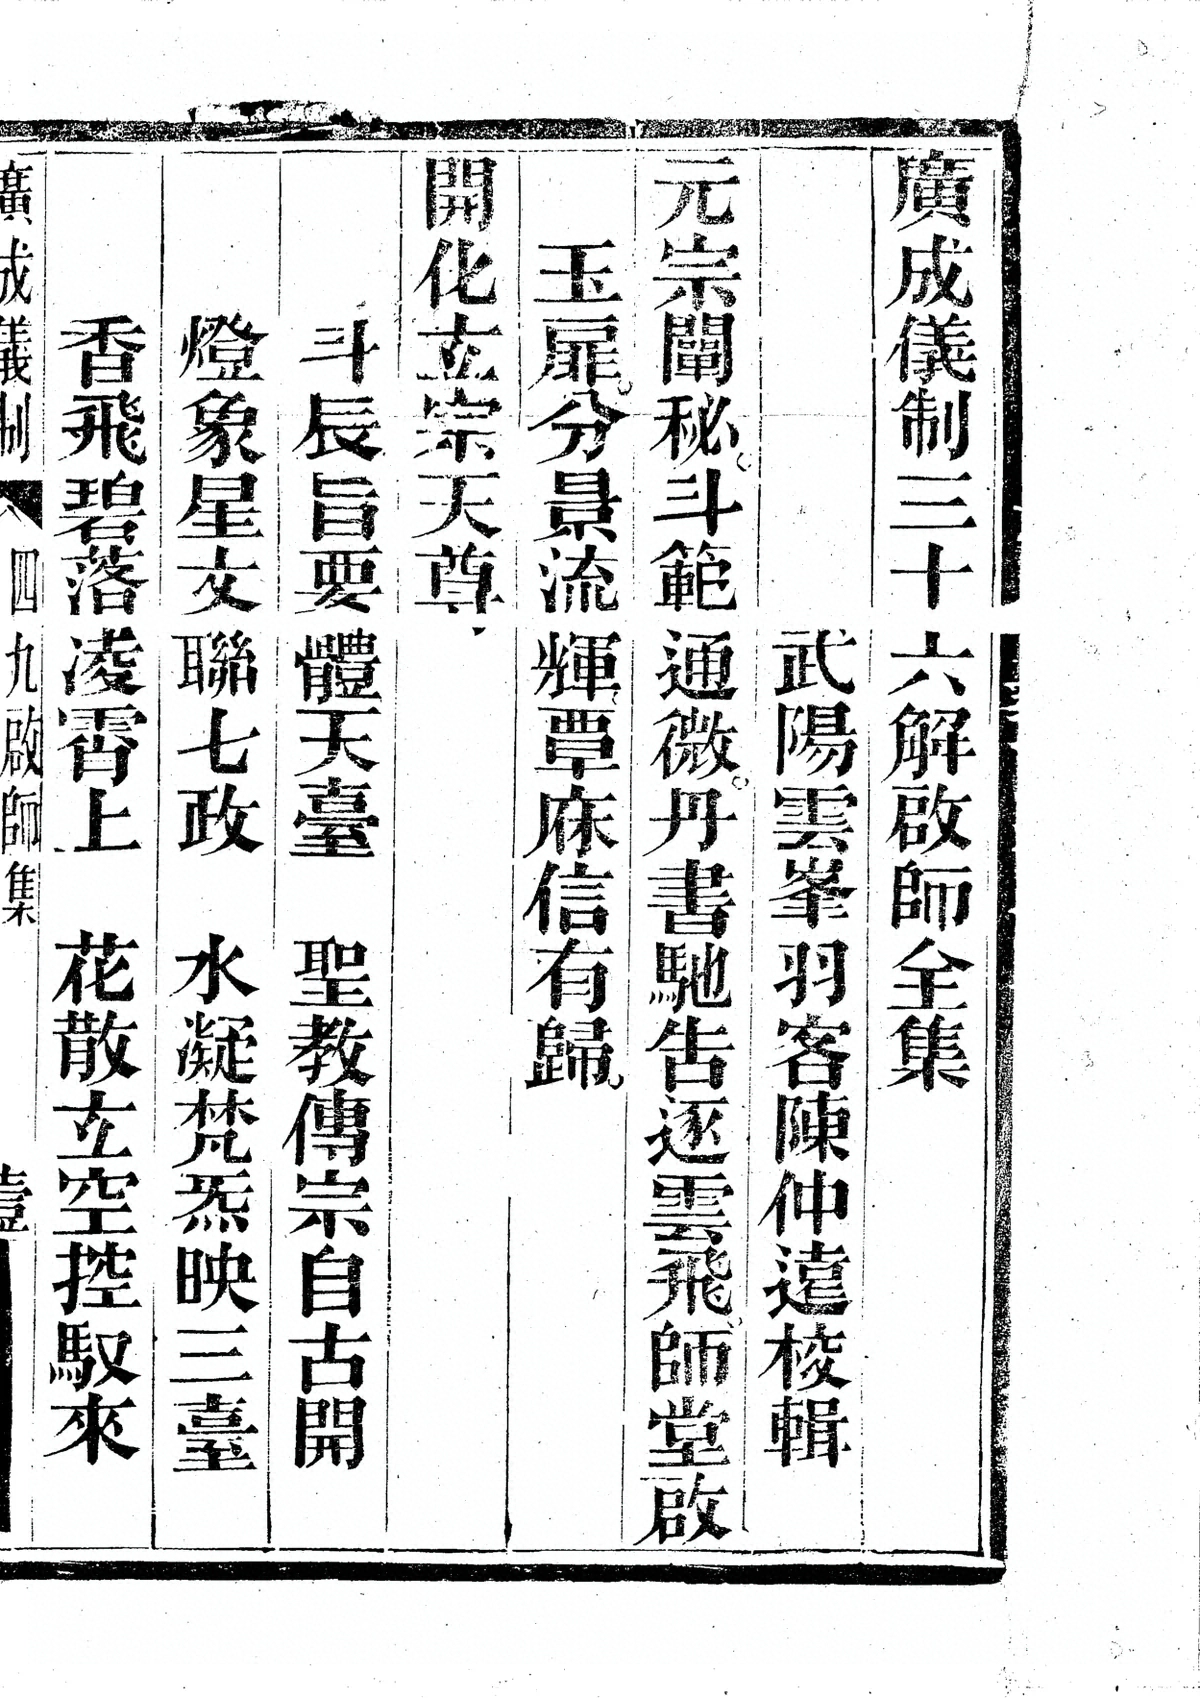 廣成儀制三十六解啟師全集
武陽雲峯羽客陳仲遠校輯
元宗闡秘。斗範通微。丹書馳告逐雲飛。師堂啟
玉扉。分景流輝。覃庥信有歸。
開化玄宗天尊
斗辰旨要體天臺　聖教傳宗自古開
燈象星文聯七政　水凝梵炁映三臺
香飛碧落凌霄上　花散玄空控馭來
廣成儀制　四九啟師集　壹